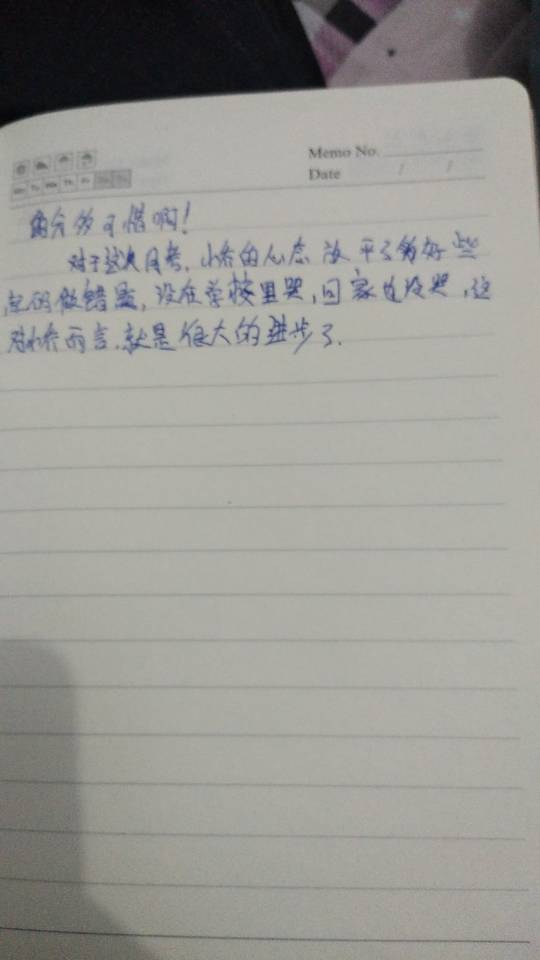 Memo No.
Date / /
的分多可惜啊!
对于这次月考,小乔的心态放平了好些
起码做错题,没在学校里哭,回家也没哭,这
对小乔而言,就是很大的进步了.